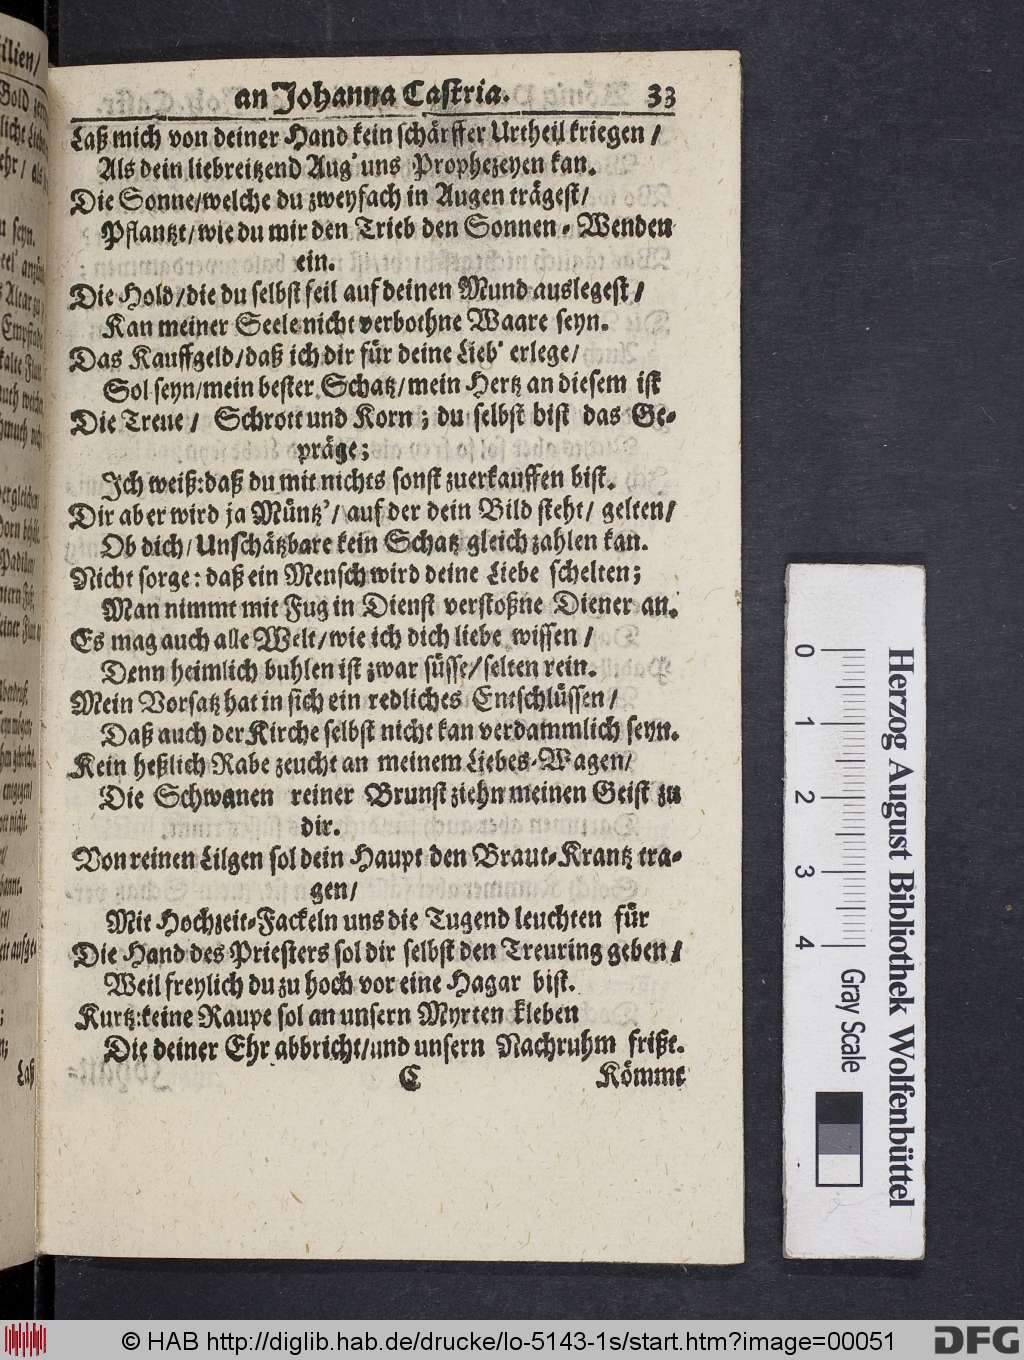 an Johanna Castria. 33
Laß mich von deiner Hand kein schärffer Urtheil kriegen /
Als dein liebreitzend Aug' uns Prophezeyen kan.
Die Sonne/welche du zweyfach in Augen trägest/
Pflantzt/wie du mir den Trieb den Sonnen-Wenden
ein.
Die Hold/die du selbst feil auf deinen Mund auslegest/
Kan meiner Seele nicht verbothne Waare seyn.
Das Kauffgeld/daß ich dir für deine Lieb' erlege/
Sol seyn/mein bester Schatz/mein Hertz an diesem ist
Die Treue/ Schrott und Korn; du selbst bist das Ge-
präge;
Ich weiß:daß du mit nichts sonst zuerkauffen bist.
Dir aber wird ja Müntz'/ auf der dein Bild steht/ gelten/
Ob dich/Unschätzbare kein Schatz gleich zahlen kan.
Nicht sorge: daß ein Mensch wird deine Liebe schelten;
Man nimmt mit Fug in Dienst verstoßne Diener an.
Es mag auch alle Welt/wie ich dich liebe wissen /
Denn heimlich buhlen ist zwar süsse/selten rein.
Mein Vorsatz hat in sich ein redliches Entschlüssen/
Daß auch der Kirche selbst nicht kan verdammlich seyn.
Kein heßlich Rabe zeucht an meinem Liebes-Wagen/
Die Schwanen reiner Brunst ziehn meinen Geist zu
dir.
Von reinen Lilgen sol dein Haupt den Braut-Krantz tra-
gen/
Mit Hochzeit-Fackeln uns die Tugend leuchten für
Die Hand des Priesters sol dir selbst den Treuring geben/
Weil freylich du zu hoch vor eine Hagar bist.
Kurtz:keine Raupe sol an unsern Myrten kleben
Die deiner Ehr abbricht/und unsern Nachruhm frißt.
C Kömmt
Laß
0 1 2 3 4 Gray Scale
Herzog August Bibliothek Wolfenbüttel
© HAB http://diglib.hab.de/drucke/lo-5143-1s/start.htm?image=00051
DFG